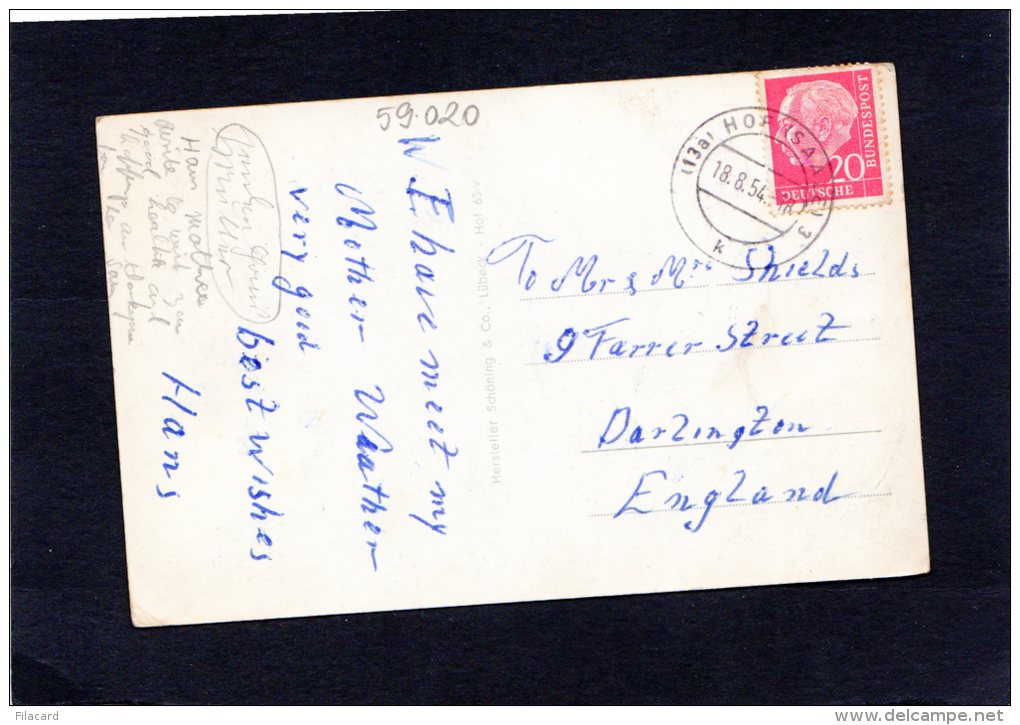 59.020
W I have meet my
Mother Weather
very good
best wishes
Hans
Hans Mother
good health and
Hersteller Schöning & Co., Lübeck - Hof 63 v
(13a) HOF (SAALE) 3
18.8.54.
k
20
DEUTSCHE
BUNDESPOST
To Mr & Mrs Shields
9 Farrer Street
Darlington
England
Filacard
delcampe.net